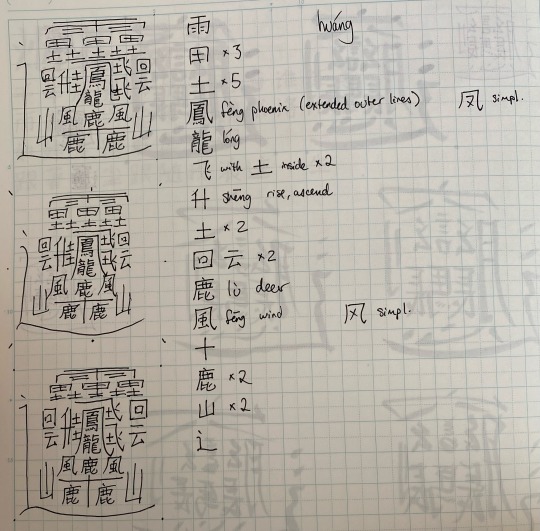 雨 huáng
田 ×3
土 ×5
鳳 fèng phoenix (extended outer lines) 凤 simpl.
龍 lóng
飞 with 土 inside ×2
升 shēng rise, ascend
土 ×2
回 云 ×2
鹿 lù deer
風 fēng wind 风 simpl.
十
鹿 ×2
山 ×2
辶